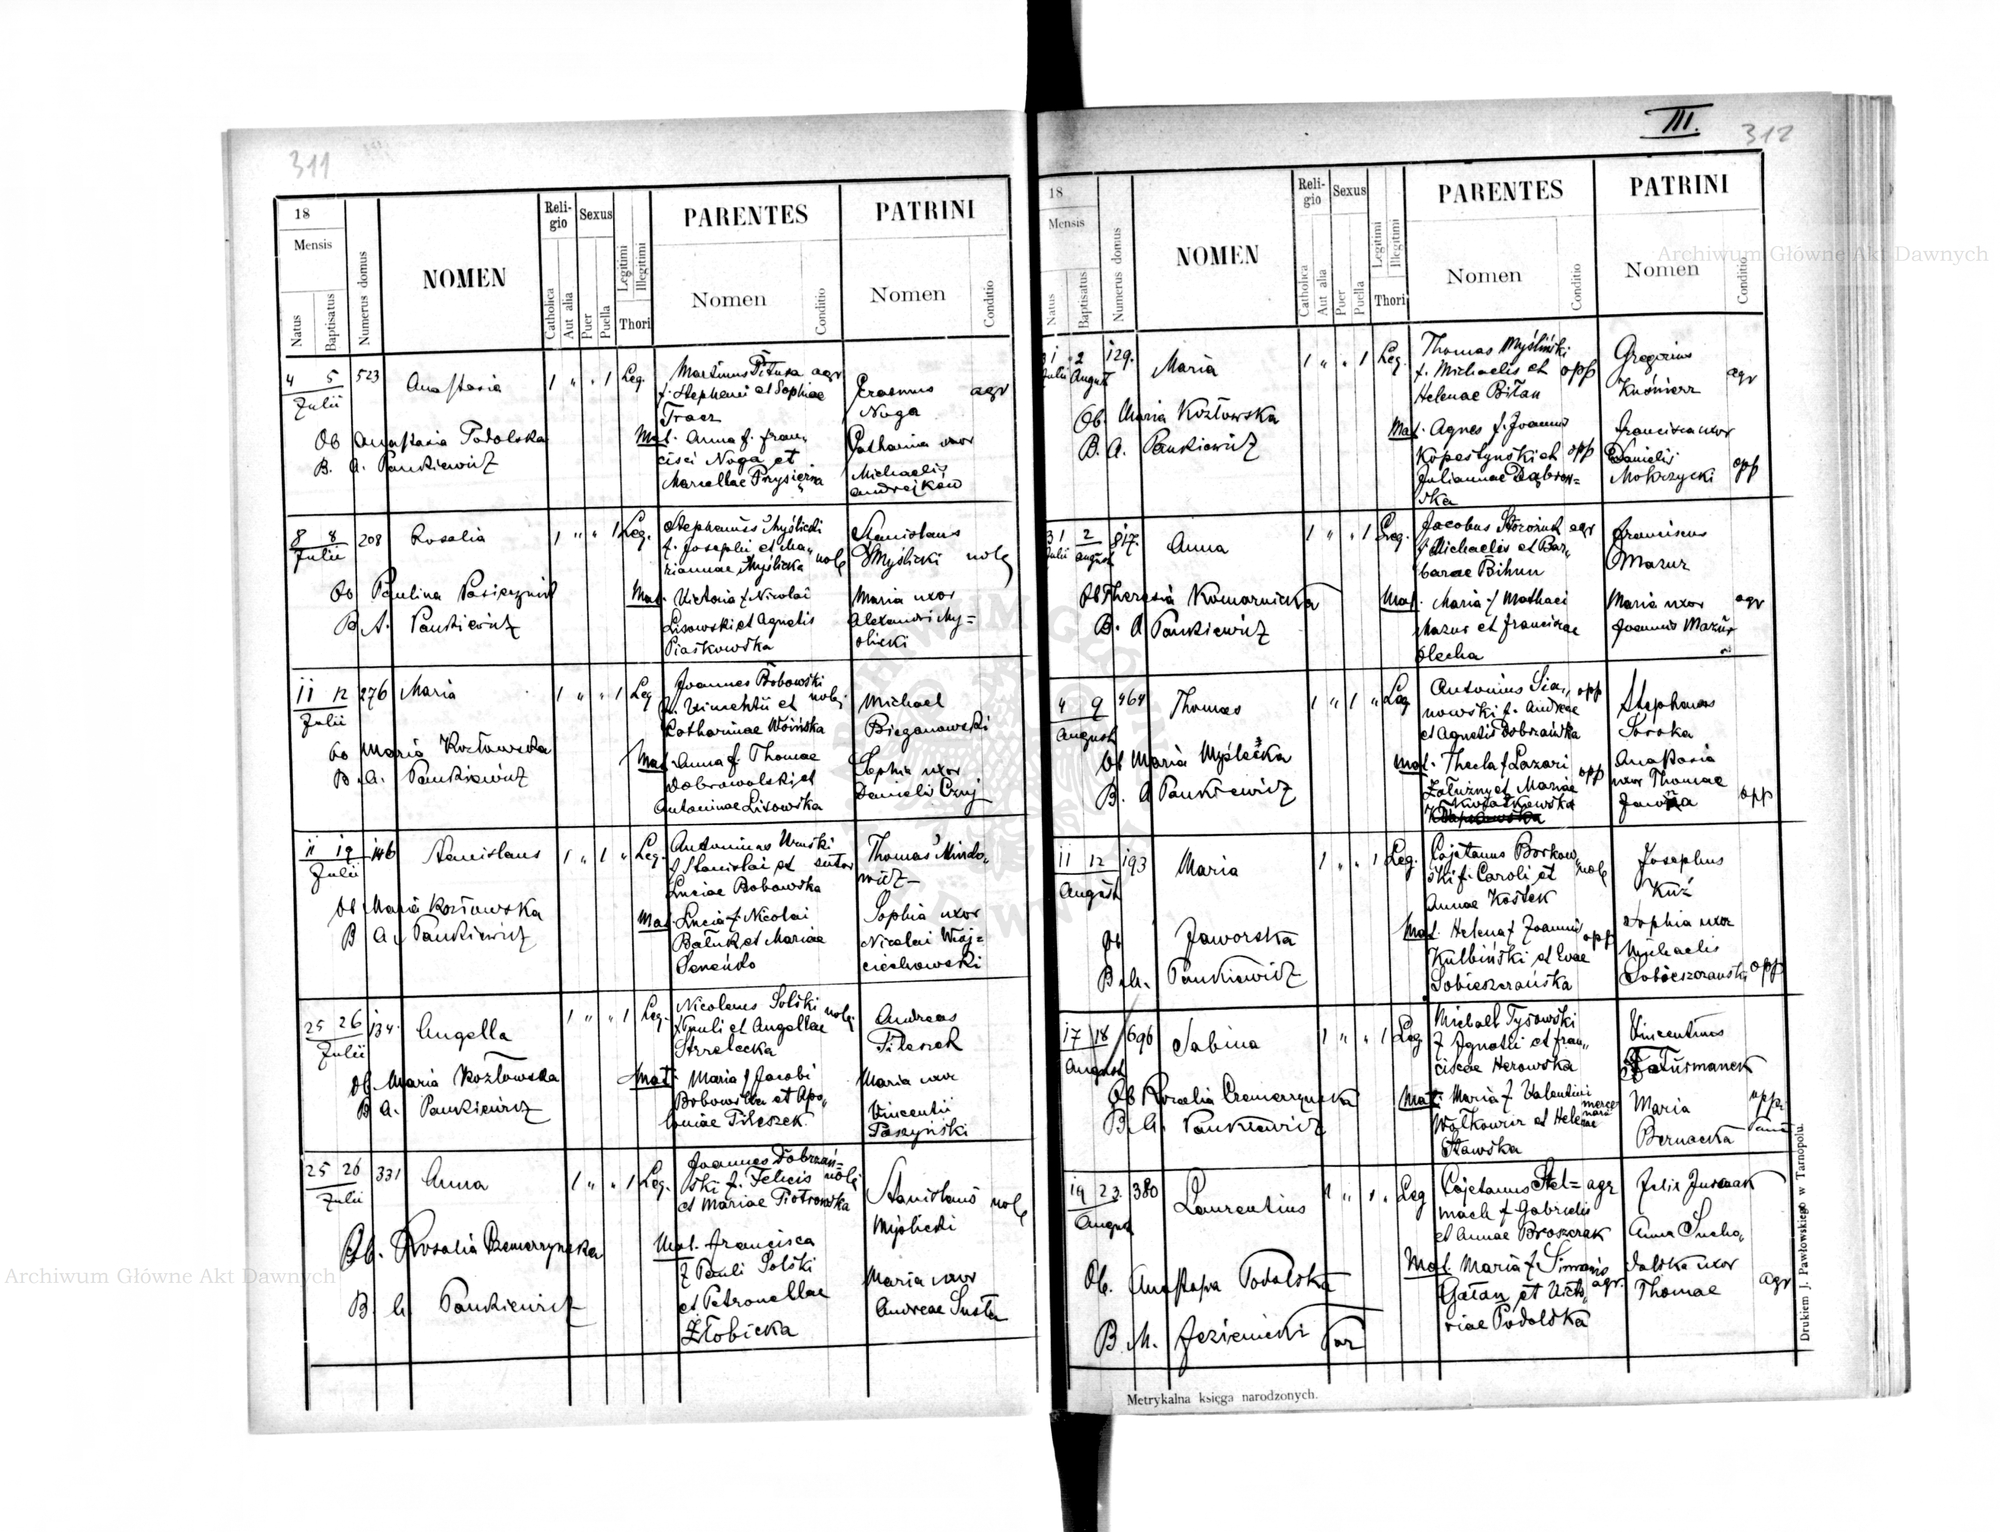 311
18
Mensis
Natus
Baptisatus
Numerus domus
NOMEN
Reli-
gio
Catholica
Aut alia
Sexus
Puer
Puella
Legitimi
Illegitimi
Thori
PARENTES
Nomen
Conditio
PATRINI
Nomen
Conditio
4 5 523 Anastasia 1 " " 1 Leg.
Julii
Ob Anastasia Podolska
B. A. Pankiewicz
Martinus Pitura agr
f. Stephani et Sophiae
Tracz
Mat. Anna f. Fran„
cisci Noga et
Marcellae Przysiężna
Erasmus agr
Noga
Catharina uxor
Michaelis
Andrejków
8 8 208 Rosalia 1 " " 1 Leg.
Julii
Ob Paulina Pasiecznik
B A. Pankiewicz
Stephanus Myślicki
f. Josephi et Ma„
riannae Myślicka nob
Mat. Victoria f. Nicolai
Lisowski et Agnetis
Piaskowska
Stanislaus
Myślicki nob
Maria uxor
Alexandri My=
slicki
11 12 276 Maria 1 " " 1 Leg
Julii
Ob Maria Kozłowska
B. A. Pankiewicz
Joannes Bobowski
f. Vincentii et nob
Catharinae Wosińska
Mat. Anna f. Thomae
Dobrowolski et
Antoninae Lisowska
Michael
Bieganowski
Sophia uxor
Danielis Czuj
11 19 146 Stanislaus 1 " 1 " Leg.
Julii
Ob Maria Kozłowska
B A. Pankiewicz
Antoninus
f Stanislai et sutor
Luciae Bobowska
Mat. Lucia f. Nicolai
Bałuk et Mariae
Thomas
Sophia uxor
Nicolai Woj=
ciechowski
25 26 134. Angella 1 " " 1 Leg.
Julii
Ob Maria Kozłowska
B A. Pankiewicz
Nicolaus Solski nob
f Pauli et Angellae
Strzelecka
Mat. Maria f Jacobi
Bobowski et Apo„
loniae Pileszek.
Andreas
Pileszek
Maria uxor
Vincentii
Paszyński
25 26 331 Anna 1 " " 1 Leg.
Julii
Ob. Rosalia Czemerzynska
B. A. Pankiewicz
Joannes Dobrzań=
ski f. Felicis nob
et Mariae Piotrowska
Mat. Francisca
f Pauli Solski
et Petronellae
Złobicka
Stanislaus nob
Myślicki
Maria uxor
Andreae Susła
III.
312
18
Mensis
Natus
Baptisatus
Numerus domus
NOMEN
Reli-
gio
Catholica
Aut alia
Sexus
Puer
Puella
Legitimi
Illegitimi
Thori
PARENTES
Nomen
Conditio
PATRINI
Nomen
Conditio
31 2 129. Maria 1 " " 1 Leg.
Julii August
Ob. Maria Kozłowska
B. A. Pankiewicz
Thomas Myśliński
f. Michaelis et opp
Helenae Biłan
Mat. Agnes f. Joannis
Kopestyński et opp
Juliannae Dąbrow=
ska
Gregorius
Kuśnierz agr
Francisca uxor
Danielis
Mokrzycki opp
31 2 817. Anna 1 " " 1 Leg.
Julii August
Ob Theresia Komarnicka
B. A Pankiewicz
Jacobus Storożuk agr
f Michaelis et Bar„
barae Bihun
Mat. Maria f Mathaei
Mazur et Franciscae
Olecha
Franciscus
Mazur
Maria uxor agr
Joannis Mazur
4 9 464 Thomas 1 " 1 " Leg
August
Ob Maria Myślicka
B. A Pankiewicz
Antonius Sia„ opp
nowski f. Andreae
et Agnetis Dobrzańska
Mat. Thecla f Lazari
Załużny et Mariae opp
Stephanus
Soroka
Anastasia
uxor Thomae
opp
11 12 193 Maria 1 " " 1 Leg.
August
Ob Jaworska
B. A. Pankiewicz
Cajetanus Borkow„
ski f. Caroli et nob
Annae Kostek
Mat. Helena f Joannis
Kulbiński et Evae opp
Sobieszczańska
Josephus
Kuź
Sophia uxor
Michaelis
Sobieszczański opp
17 18 696 Sabina 1 " " 1 Leg
August
Ob Rosalia Czemerzynska
B. A. Pankiewicz
Michael Tysowski
f Ignatii et Fran„
ciscae Herowska
Mat. Maria f Valentini
Wołkowicz et Helenae
Stawska
Vincentius
Furmanek
Maria opp.
Bernacka
19 23. 380 Laurentius 1 " 1 " Leg
August
Ob. Anastasia Podolska
B. M. Jezienicki
Cajetanus Stel= agr
mach f Gabrielis
et Annae Broszczak
Mat. Maria f Simonis
Gałan et Victo„ agr.
riae Podolska
Felix Jusczak
Anna Sucho„
dolska uxor
Thomae agr
Metrykalna księga narodzonych.
Drukiem J. Pawłowskiego w Tarnopolu.
Archiwum Główne Akt Dawnych
Archiwum Główne Akt Dawnych
ARCHIWUM GŁÓWNE AKT DAWNYCH